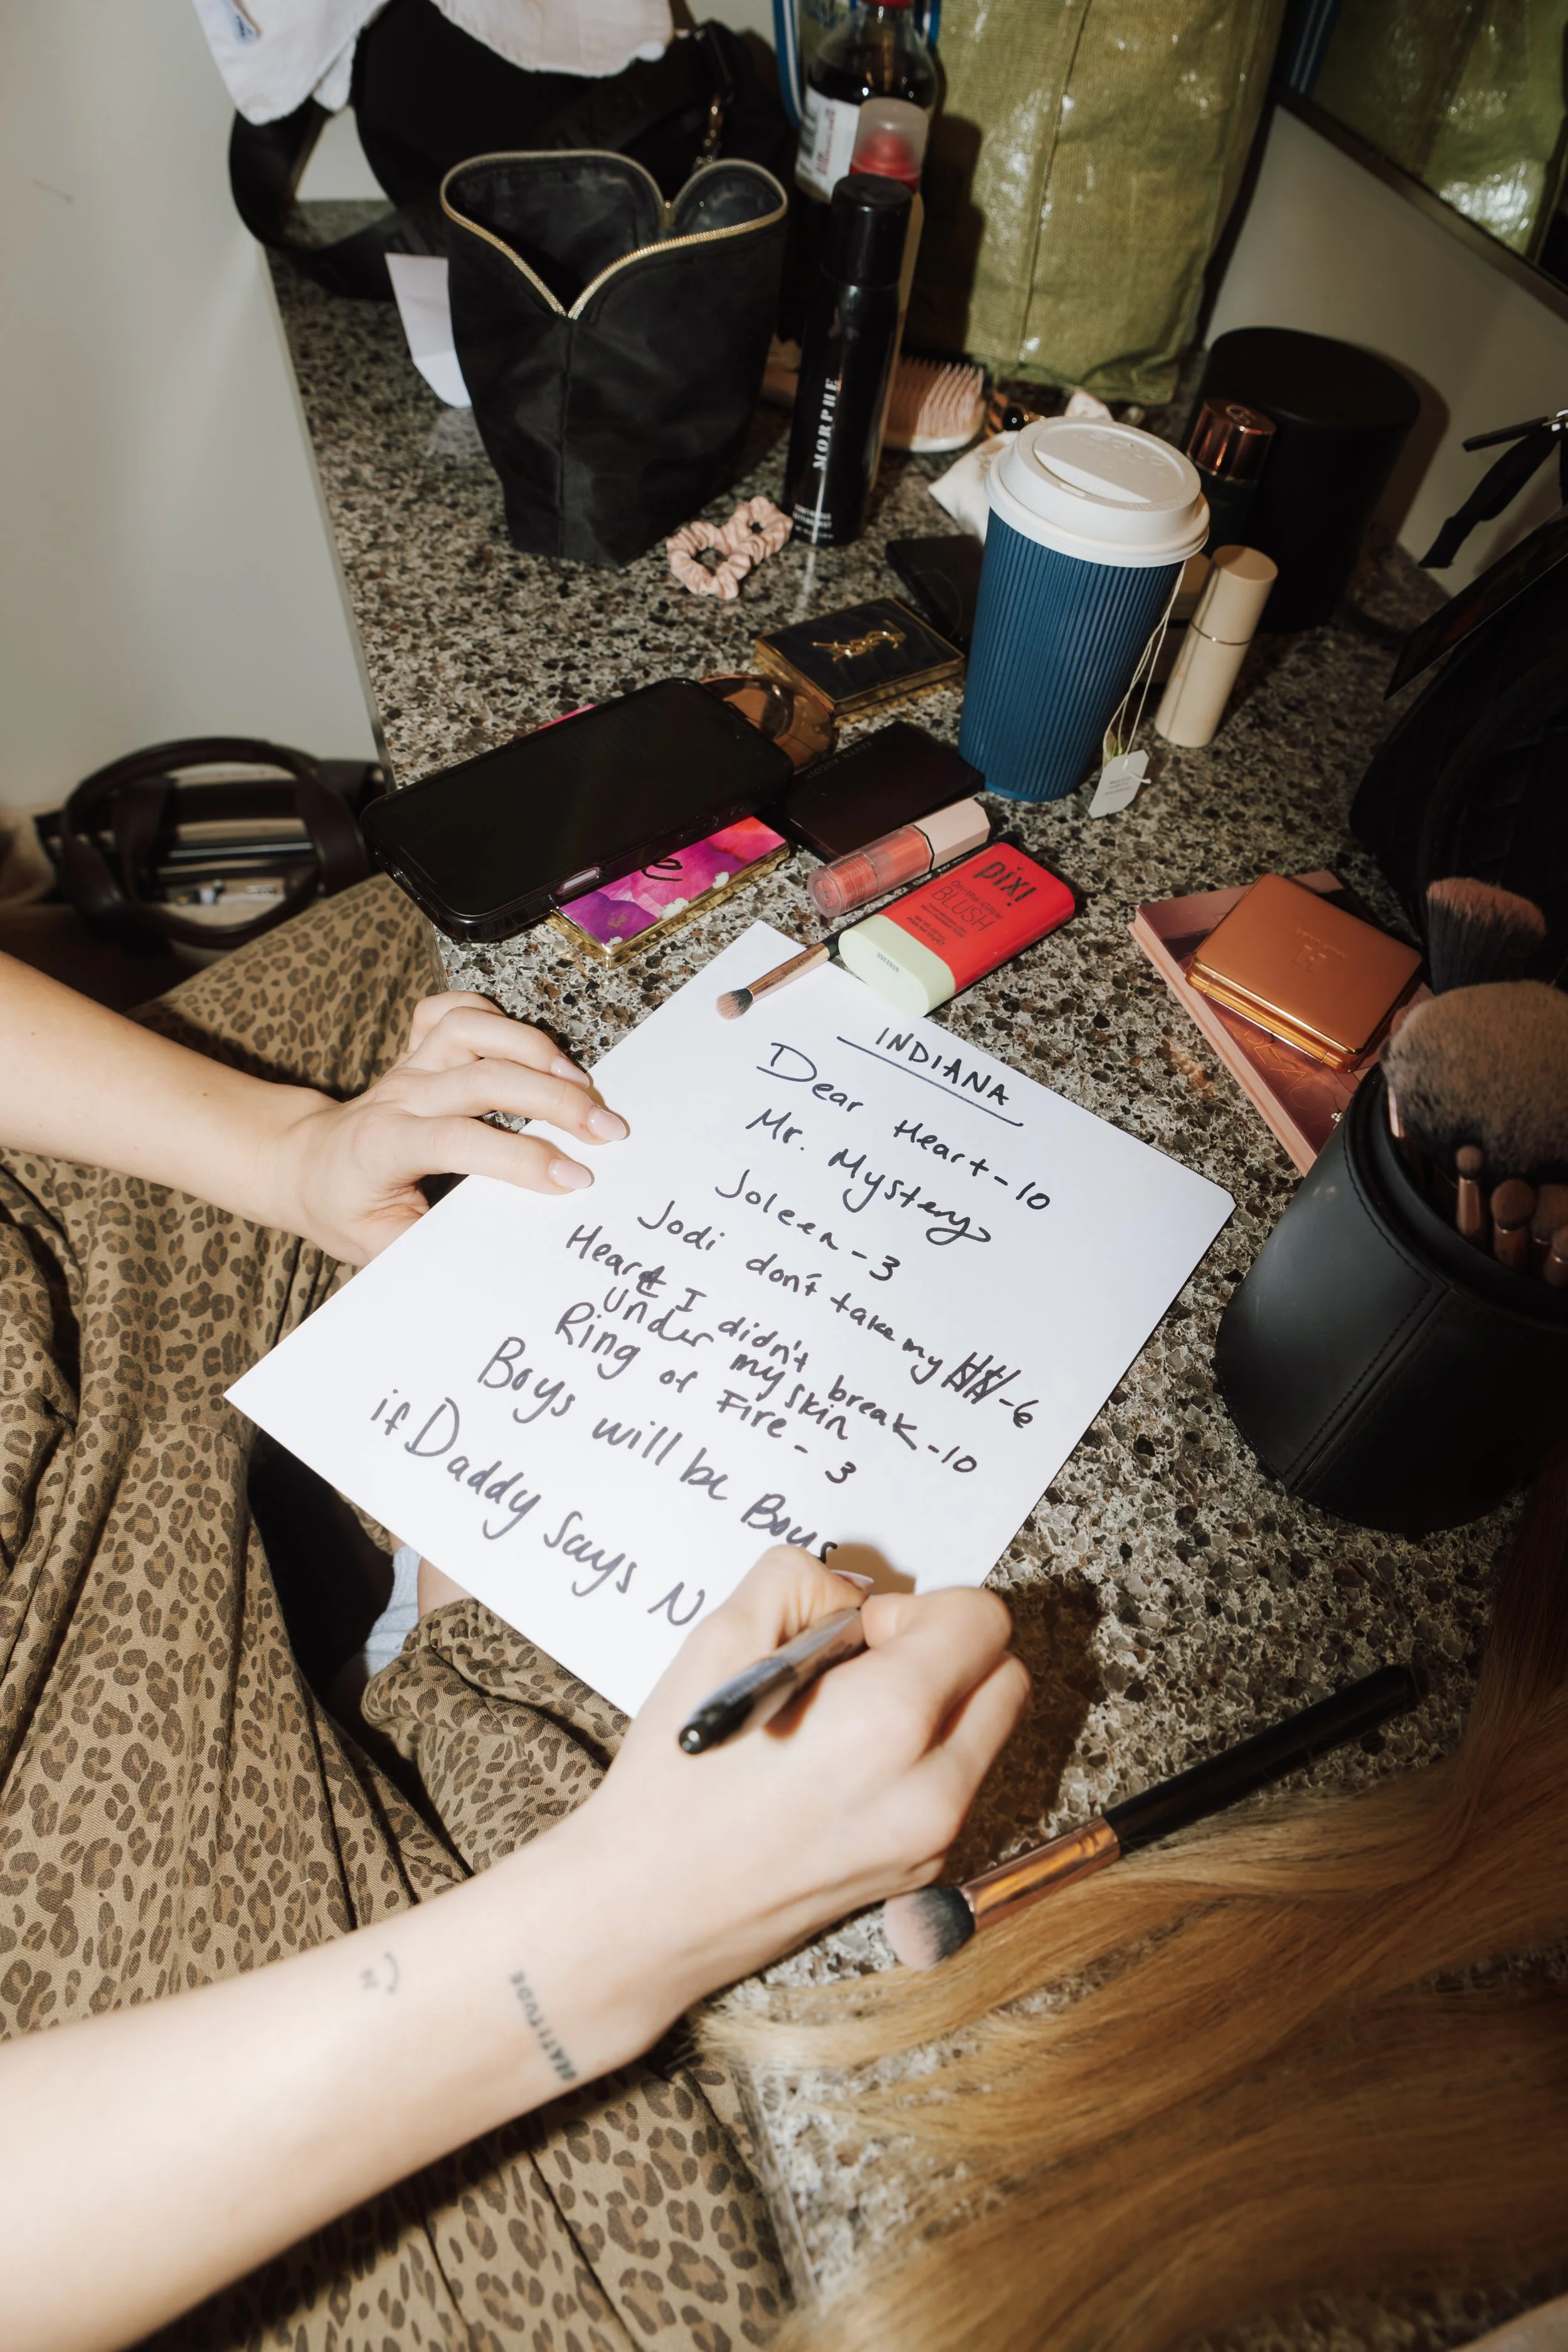 MORPHE
YSL
e
pixi
On-the-Glow
BLUSH
INDIANA
Dear Heart-10
Mr. Mystery
Joleen-3
Jodi don't take my -6
Heart I didn't break-10
under my skin
Ring of Fire-3
Boys will be Boys
if Daddy says N